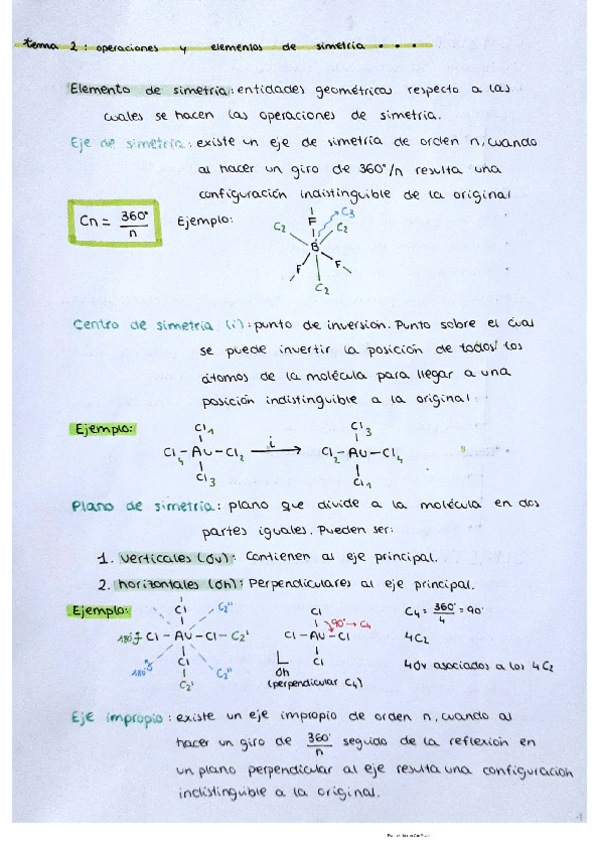 tema 2: operaciones y elementos de simetría...
Elemento de simetría: entidades geométricas respecto a las
cuales se hacen las operaciones de simetría.
Eje de simetría: existe un eje de simetría de orden n, cuando
al hacer un giro de 360°/n resulta una
configuración indistinguible de la original
Cn = 360°/n Ejemplo:
F C3
C2 C2
B
F F
C2
Centro de simetría (i): punto de inversión. Punto sobre el cual
se puede invertir la posición de todos los
átomos de la molécula para llegar a una
posición indistinguible a la original.
Ejemplo: Cl1 Cl3
Cl4 - Au - Cl2 i → Cl2 - Au - Cl4
Cl3 Cl1
Plano de simetría: plano que divide a la molécula en dos
partes iguales. Pueden ser:
1. verticales (σv): Contienen al eje principal.
2. horizontales (σh): Perpendiculares al eje principal.
Ejemplo: Cl C2'' Cl C4 = 360°/4 = 90°
90° → C4
180° Cl - Au - Cl - C2' Cl - Au - Cl 4C2
180° Cl C2'' σh Cl 4σv asociados a los 4C2
C2' (perpendicular C4)
Eje impropio: existe un eje impropio de orden n, cuando al
hacer un giro de 360°/n seguido de la reflexión en
un plano perpendicular al eje resulta una configuración
indistinguible a la original.